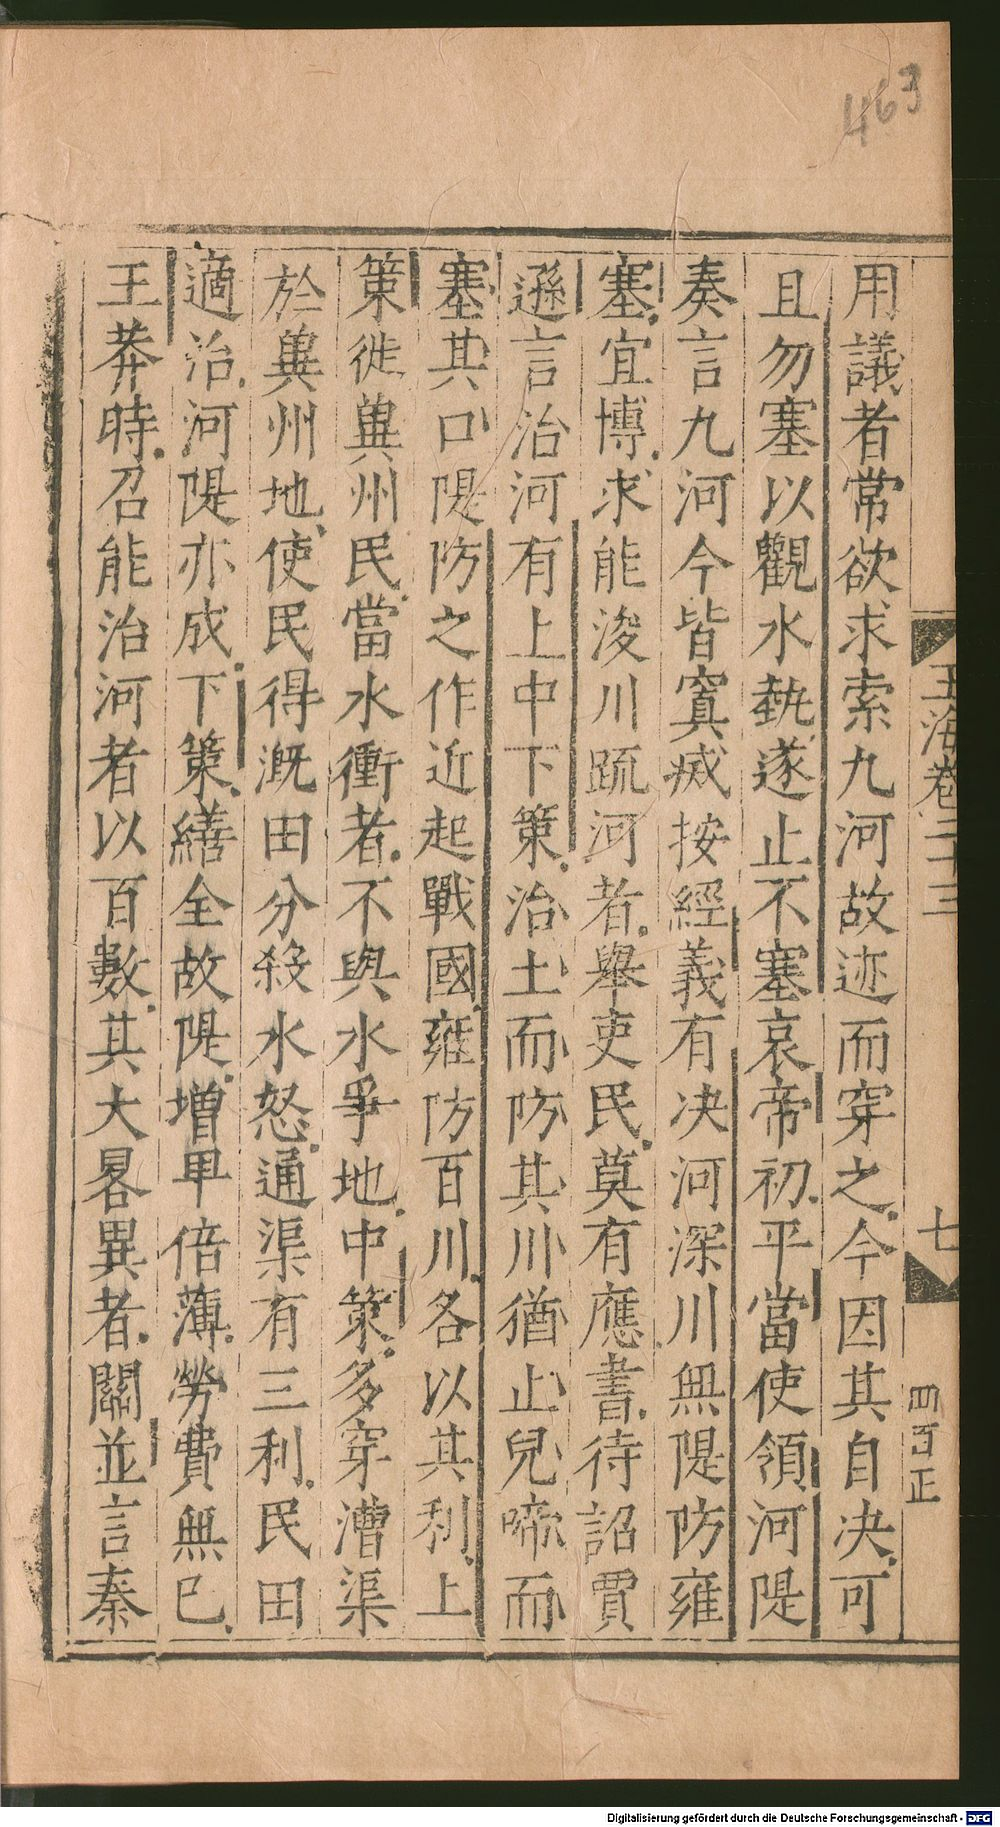 463
玉海卷二十三
七
四百正
用議者常欲求索九河故迹而穿之今因其自決可
且勿塞以觀水埶遂止不塞哀帝初平當使領河隄
奏言九河今皆寘烕按經義有决河深川無隄防雍
塞宜博求能浚川疏河者舉吏民莫有應書待詔賈
遜言治河有上中下策治土而防其川猶止兒啼而
塞其口隄防之作近起戰國雍防百川各以其利上
策徙兾州民當水衝者不與水爭地中策多穿漕渠
於兾州地使民得溉田分殺水怒通渠有三利民田
適治河隄亦成下策繕全故隄增卑倍薄勞費無已
王莽時召能治河者以百數其大畧異者關並言秦
Digitalisierung gefördert durch die Deutsche Forschungsgemeinschaft - DFG